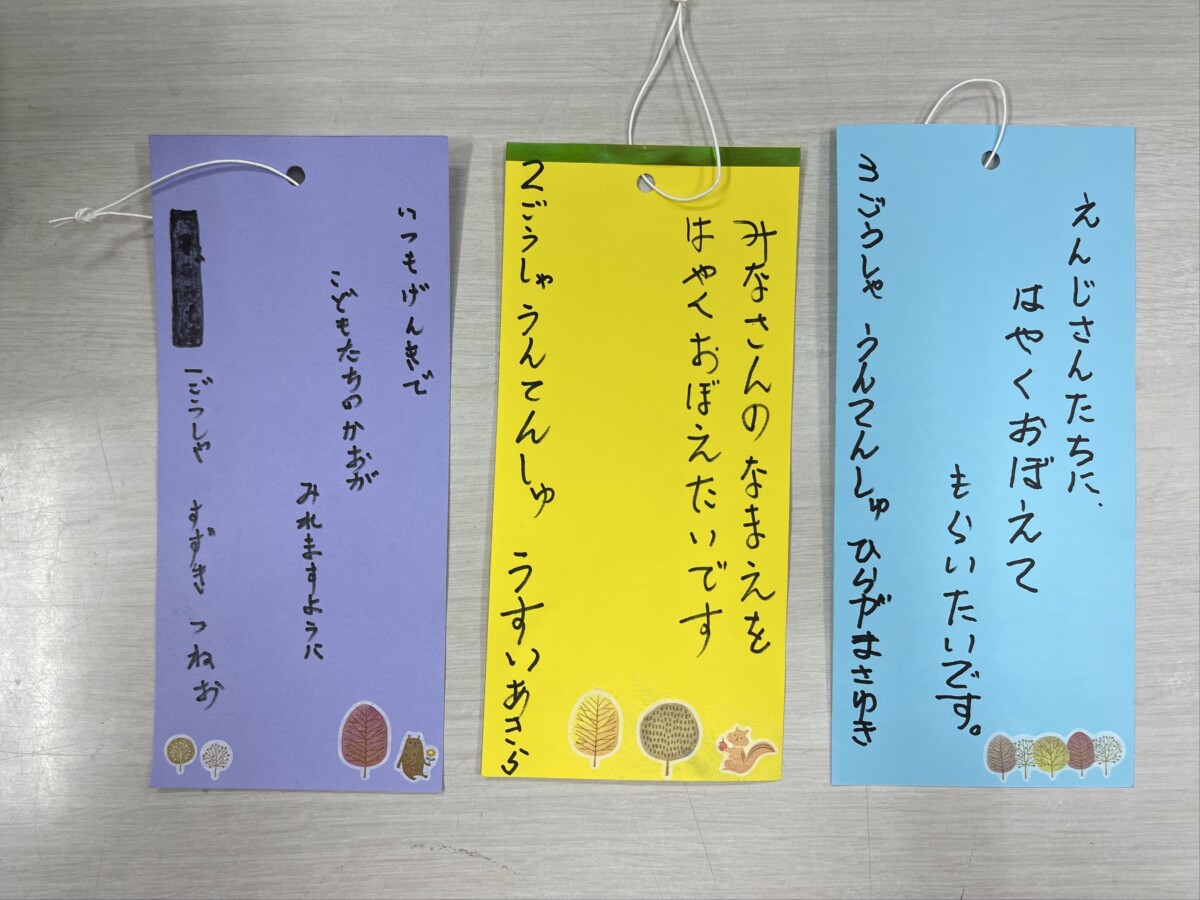 いつもげんきで
こどもたちのかおが
みれますように
1ごうしゃ すずき つねお
みなさんのなまえを
はやくおぼえたいです
2ごうしゃうんてんしゅ うすいあきら
えんじさんたちに、
はやくおぼえて
もらいたいです。
3ごうしゃ うんてんしゅ ひらがまさゆき